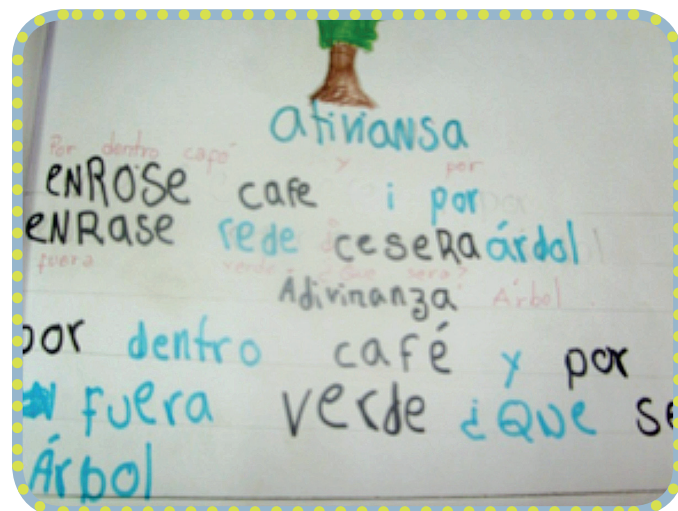 ativiansa
Por dentro café y por
ENROSE cafe i por
ENRASE rede ceseRa árdol
fuera verde ¿Que sera?
Adivinanza Árbol
por dentro café y por
fuera verde ¿Que se
Árbol